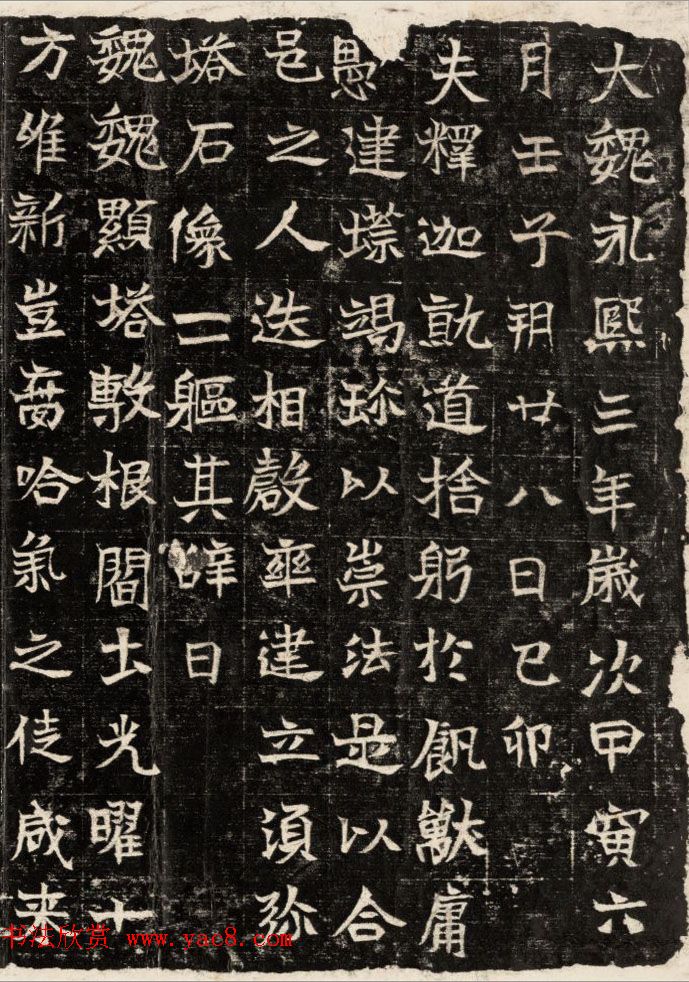 大魏永熙三年歲次甲寅六
月壬子朔廿八日己卯
夫釋迦就道捨躬於飢獸庸
愚建墖竭珎以崇法是以合
邑之人迭相磬率建立湏弥
塔石像一軀其辞曰
巍巍顯塔敷根閻土光曜十
方維新豈啻哈氣之徒咸来
书法欣赏 www.yac8.com